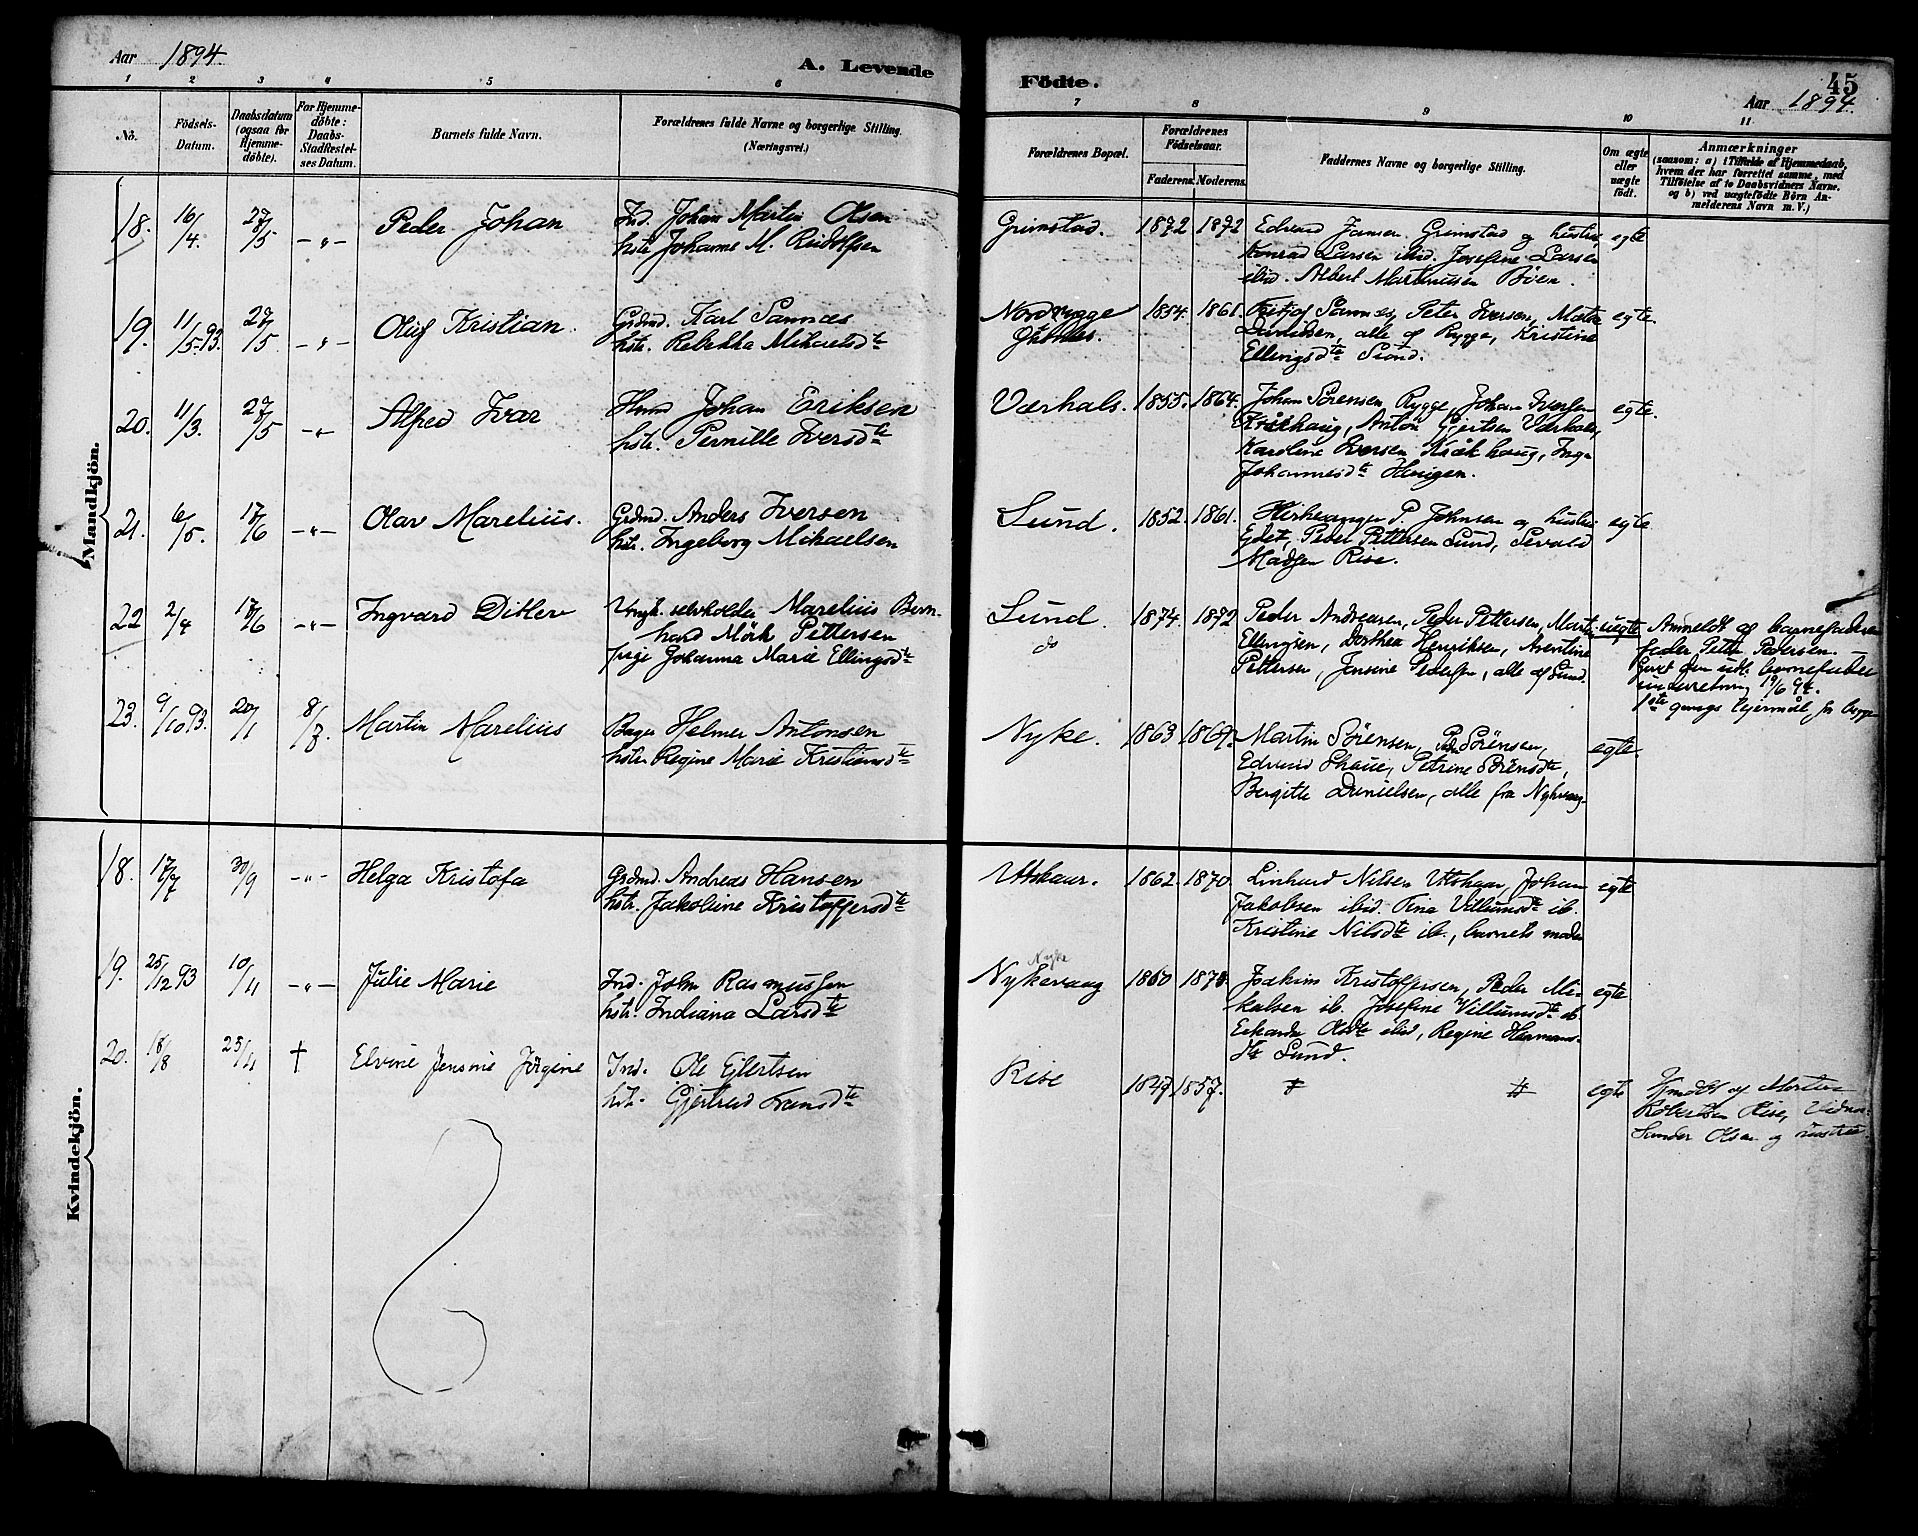 Aar 1894.
A. Levende
Födte.
45
Aar 1894.
1 2 3 4 5 6 7 8 9 10 11
No.
Födsels-Datum.
Daabsdatum (ogsaa for Hjemmedöbte).
For Hjemmedöbte: Daabs-Stadfæstelses Datum.
Barnets fulde Navn.
Forældrenes fulde Navne og borgerlige Stilling.
(Næringsvei.)
Forældrenes Bopæl.
Forældrenes Födselsaar.
Faderens. Moderens.
Faddernes Navne og borgerlige Stilling.
Om ægte eller uægte födt.
Anmærkninger
(saasom: a) i Tilfælde af Hjemmedaab, hvem der har forrettet samme, med Tilföielse af to Daabsvidners Navne, og b) ved uægtefödte Börn Anmelderens Navn m.V.)
Mandkjön.
18. 16/4. 27/5 -"- Peder Johan
Ind. Johan Martin Olsen
hstr. Johanne M. Reidolfsen
Grimstad. 1872 1872
Edvard Jansen Grimstad og hustru,
Konrad Larsen ibid. Josefine Larsen
ibid. Albert Martinusen Böen.
egte
19. 11/5 93. 27/5 -"- Oluf Kristian.
Grdmd. Karl Sannes
hstr. Rebekka Mikaelsdte
Nordrygge
1854. 1861.
Sannes, Peter Iversen,
Danielsen, alle af Rygge, Kristine
Ellingsdte Lund.
egte.
20. 11/3. 27/5 -"- Alfred Ivar
Johan Eriksen
hstr. Pernille Iversdte
Værhals. 1855. 1864.
Johan Sörensen Rygge, Johan Iversen
Kråkhaug, Anton Gjertsen Værhals,
Karoline Iversen Kråkhaug, Inga
Johannesdte
egte.
21. 6/5. 17/6 -"- Olav Marelius.
Grdmd. Anders Iversen
hstr. Ingeborg Mikaelsen
Lund. 1852. 1861.
P. Johnsen og hustru
Eidet, Peder Pettersen Lund, Sevald
Madsen Rise.
egte
22 2/4 17/6 -"- Ingvard Ditlev
Ungk. selvholder Marelius Bern-
hard Mörk Pettersen
pige Johanna Marie Ellingsdte
Lund. 1874. 1872
do
Peder Andreasen, Peder Pettersen, Martin
Ellingsen, Dorthea Henriksen, Arentine
Pettersen, Jensine Pedersen, alle af Lund.
uegte
Anmeldt af barnefaderens
fader Peter Pedersen. —
barnefader
underretning 19/6 94.
1ste gangs leiermål for begge
23. 9/10 93. 20/1 8/7 Martin Marelius
Helmer Antonsen
hstr. Regine Marie Kristiansdte
Nyke. 1863 1869.
Martin Sörensen, Sörensen,
Edvard Petrine Sörensdte,
Bergitte Danielsen, alle fra Nykvaag
egte.
Kvindekjön.
18. 17/7 30/9 -"- Helga Kristofa
Grdmd. Andreas Hansen
hstr. Jakobine Kristoffersdte
Utskaar. 1862. 1870.
Linhard Nilsen Utskaar, Johan
Jakobsen ibid. Tina Villumsdte ib.
Kristine Nilsdte ib., barnets moder
egte
19. 25/12 93 10/4 -"- Julie Marie
Ind. John Rasmussen
hstr. Indiana Larsdte
Nyke
Nykevaag 1860 1873.
Joakim Kristoffersen, Peder Mi-
kalsen ib. Josefine Villumsdte ib.
Olsdte ibid, Regine Hermans-
dte Lund.
egte
20. 18/8 25/4 † Elvine Jensine Jörgine
Ind. Ole Eilertsen
hstr. Gjertrud Fransdte
Rise 1847 1857.
egte
Hjmdbt af Morten
Robertsen Rise, Vidner:
Sander Olsen og hustru.